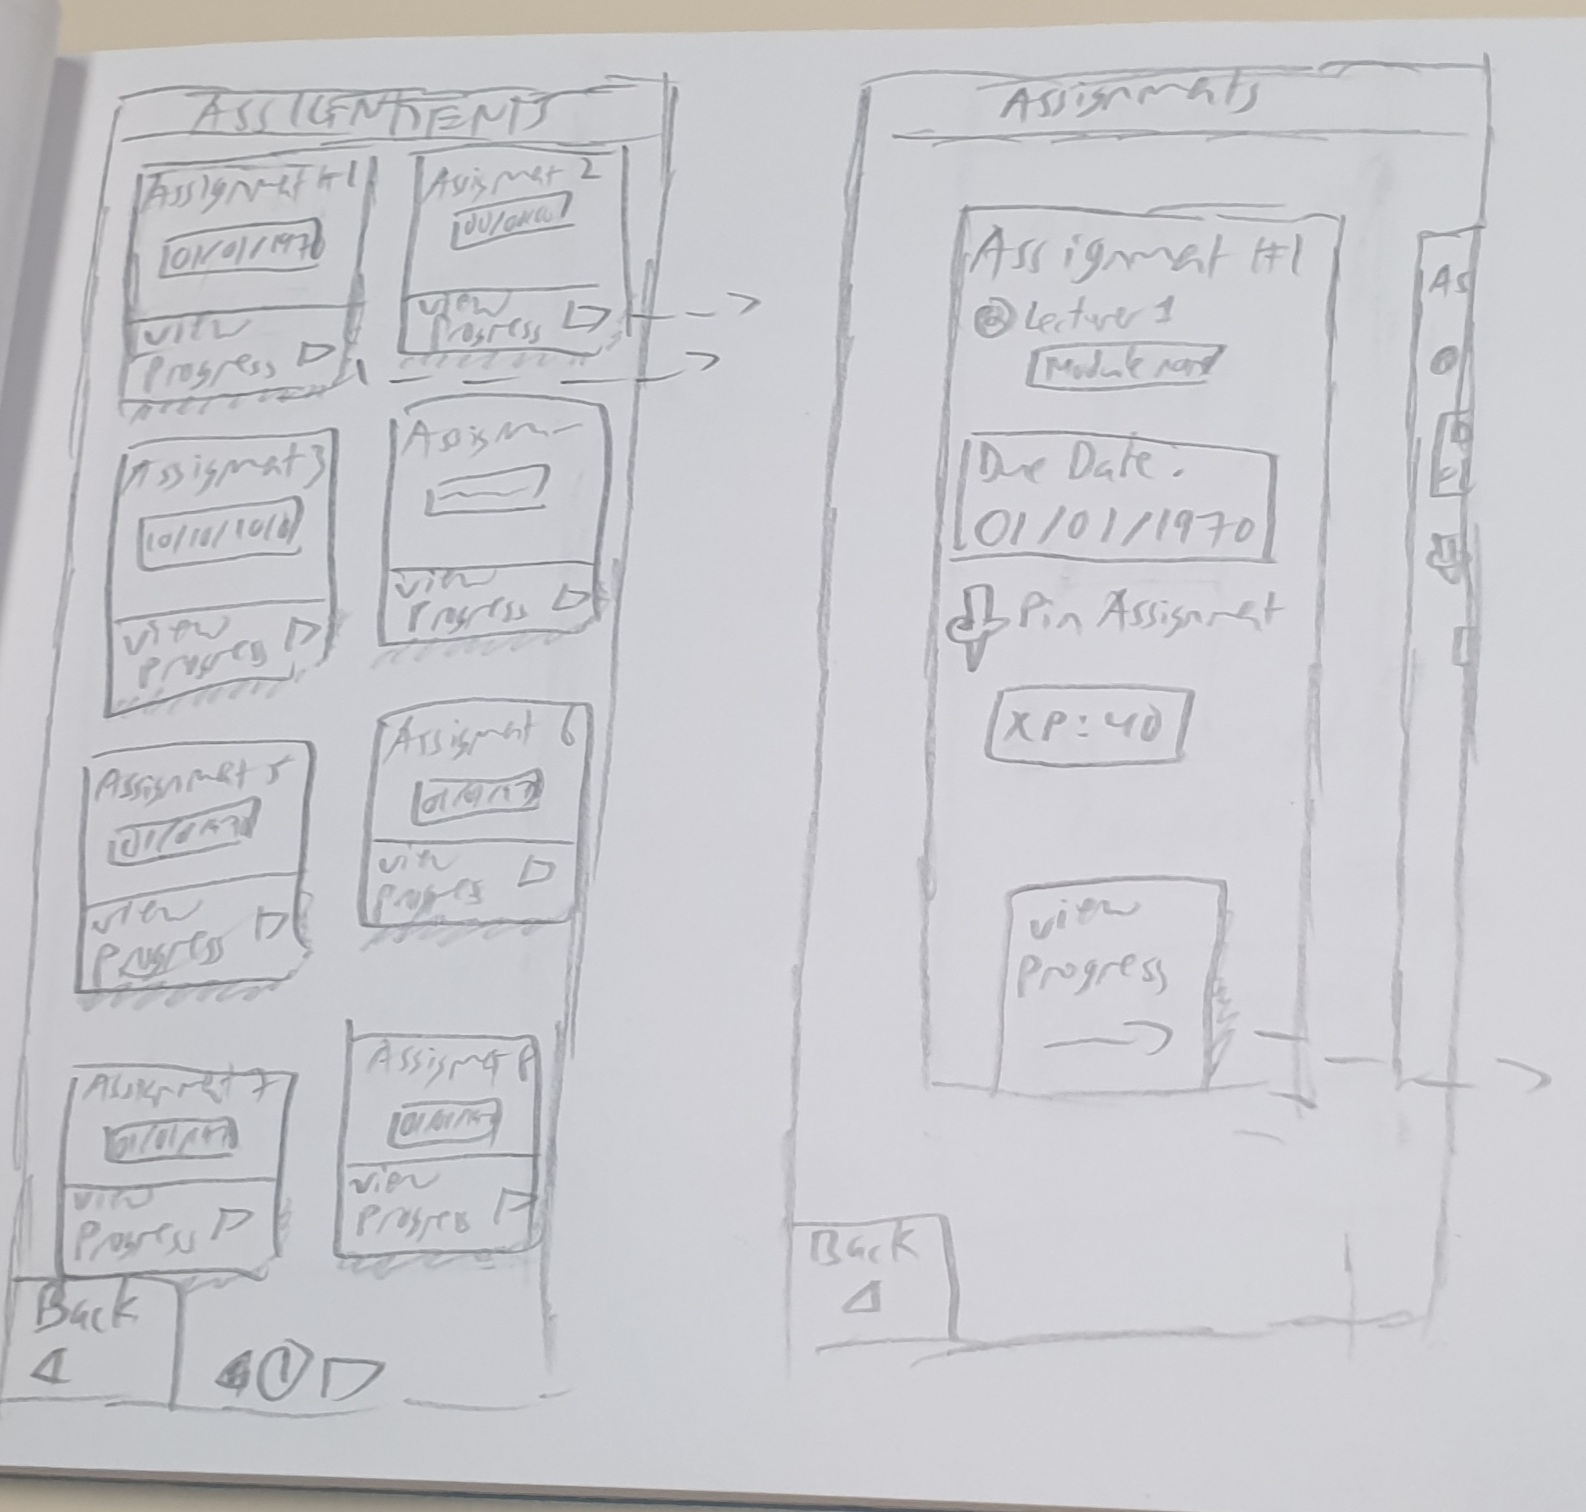 ASSIGNMENTS
Assignment #1
01/01/1970
View
Progress
Assignment 2
View
Progress
Assignment 3
10/10/1010
View
Progress
Assignm
View
Progress
Assignment 5
View
Progress
Assignment 6
View
Progress
Assignment 7
View
Progress
Assignment 8
View
Progress
Back
1
Assignments
Assignment #1
Lecturer 1
Module name
Due Date:
01/01/1970
Pin Assignment
XP: 40
View
Progress
Back
As